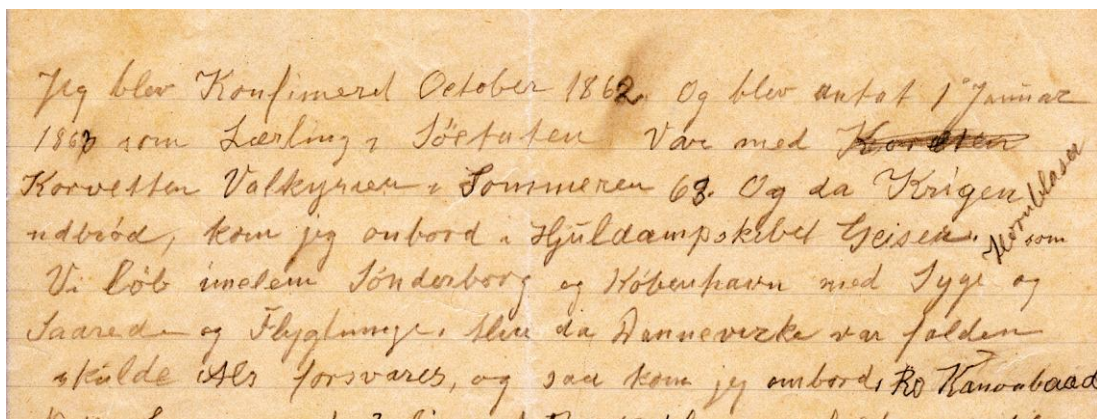 Jeg blev Konfimerd October 1862. Og blev antat 1 Januar
1863 som Lærling i Söetaten Var med Korvetten
Korvetten Valkyrien i Sommeren 63. Og da Krigen
udbröd, kom jeg onbord i Hjuldampskibet Geiser. som Hornblaser
Vi löb imelem Sönderborg og Köbenhavn med Syge og
Saarede og Flygtninge. Men da Dannevirke var falden
skulde Als forsvares, og saa kom jeg ombord i Ro Kanonbaad